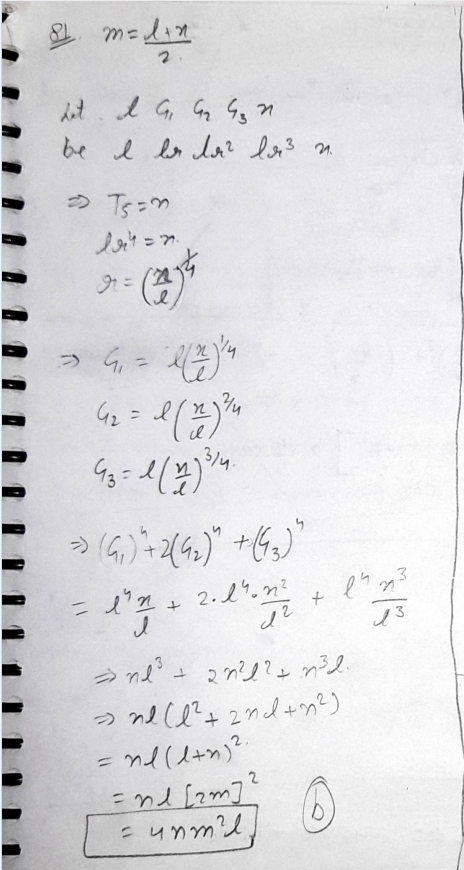 81. m = l+n/2
Let l G₁ G₂ G₃ n
be l lr lr² lr³ n.
⇒ T₅ = n
lr⁴ = n.
r = (n/l)^1/4
⇒ G₁ = l(n/l)^1/4
G₂ = l(n/l)^2/4
G₃ = l(n/l)^3/4.
⇒ (G₁)⁴ + 2(G₂)⁴ + (G₃)⁴
= l⁴ n/l + 2. l⁴. n²/l² + l⁴ n³/l³
⇒ nl³ + 2n²l² + n³l.
⇒ nl(l² + 2nl + n²)
= nl(l+n)².
= nl [2m]²
= 4nm²l (b)